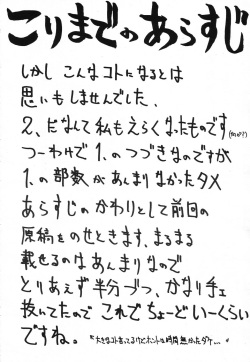 こりまでのあらすじ
しかし こんなコトになるとは
思いもしませんでした、
2、だなんて私もえらくなったものです
つーわけで 1、のつづきなのですが
1、の部数があんまりなかったタメ
あらすじのかわりとして前回の
原稿をのせときます、まるまる
載せるのはあんまりなので
とりあえず半分づつ、かなり手ェ
抜いてたので これで ちょーどいーくらい
ですね。